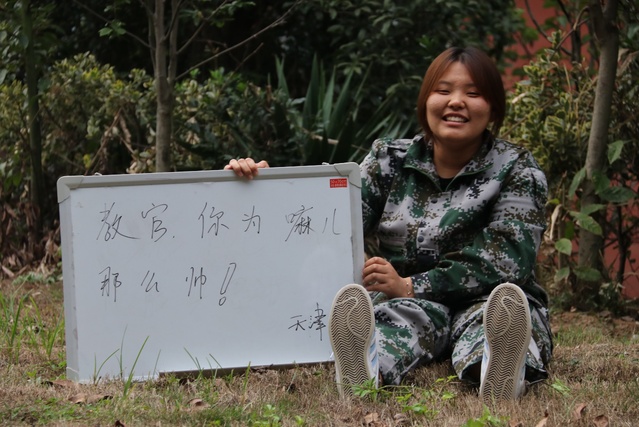 教官.你为嘛儿
那么帅!
天津